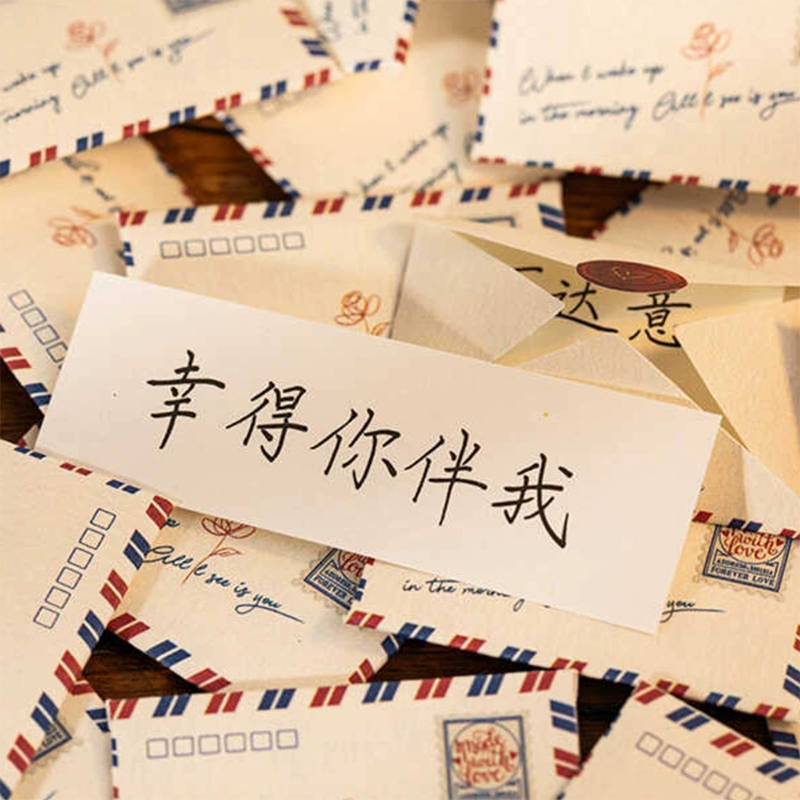 When I wake up
in the morning All I see is you
When I wake up
in the morning All I see is you
When I wake up
达意
幸得你伴我
All I see is you
in the morning
you
with
love
FOREVER LOVE
made
with
love